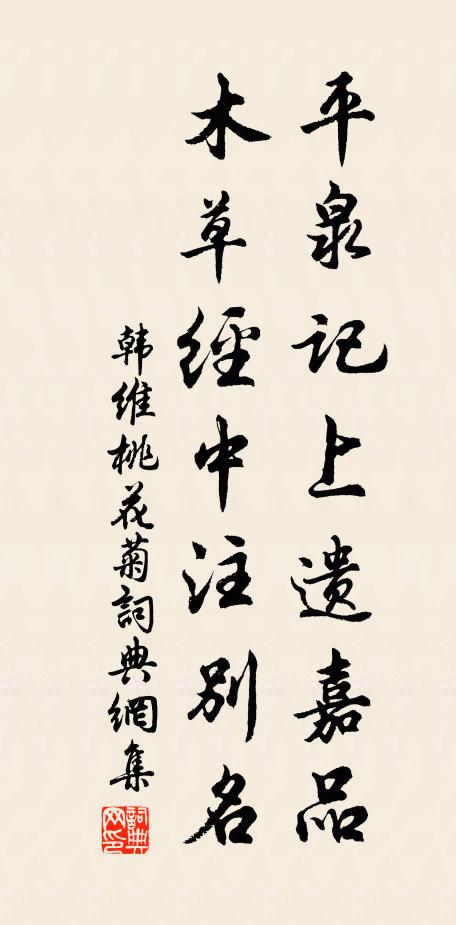 平泉记上遗嘉品
木草經中注别名
韩维桃花菊詞典網集
詞典网印